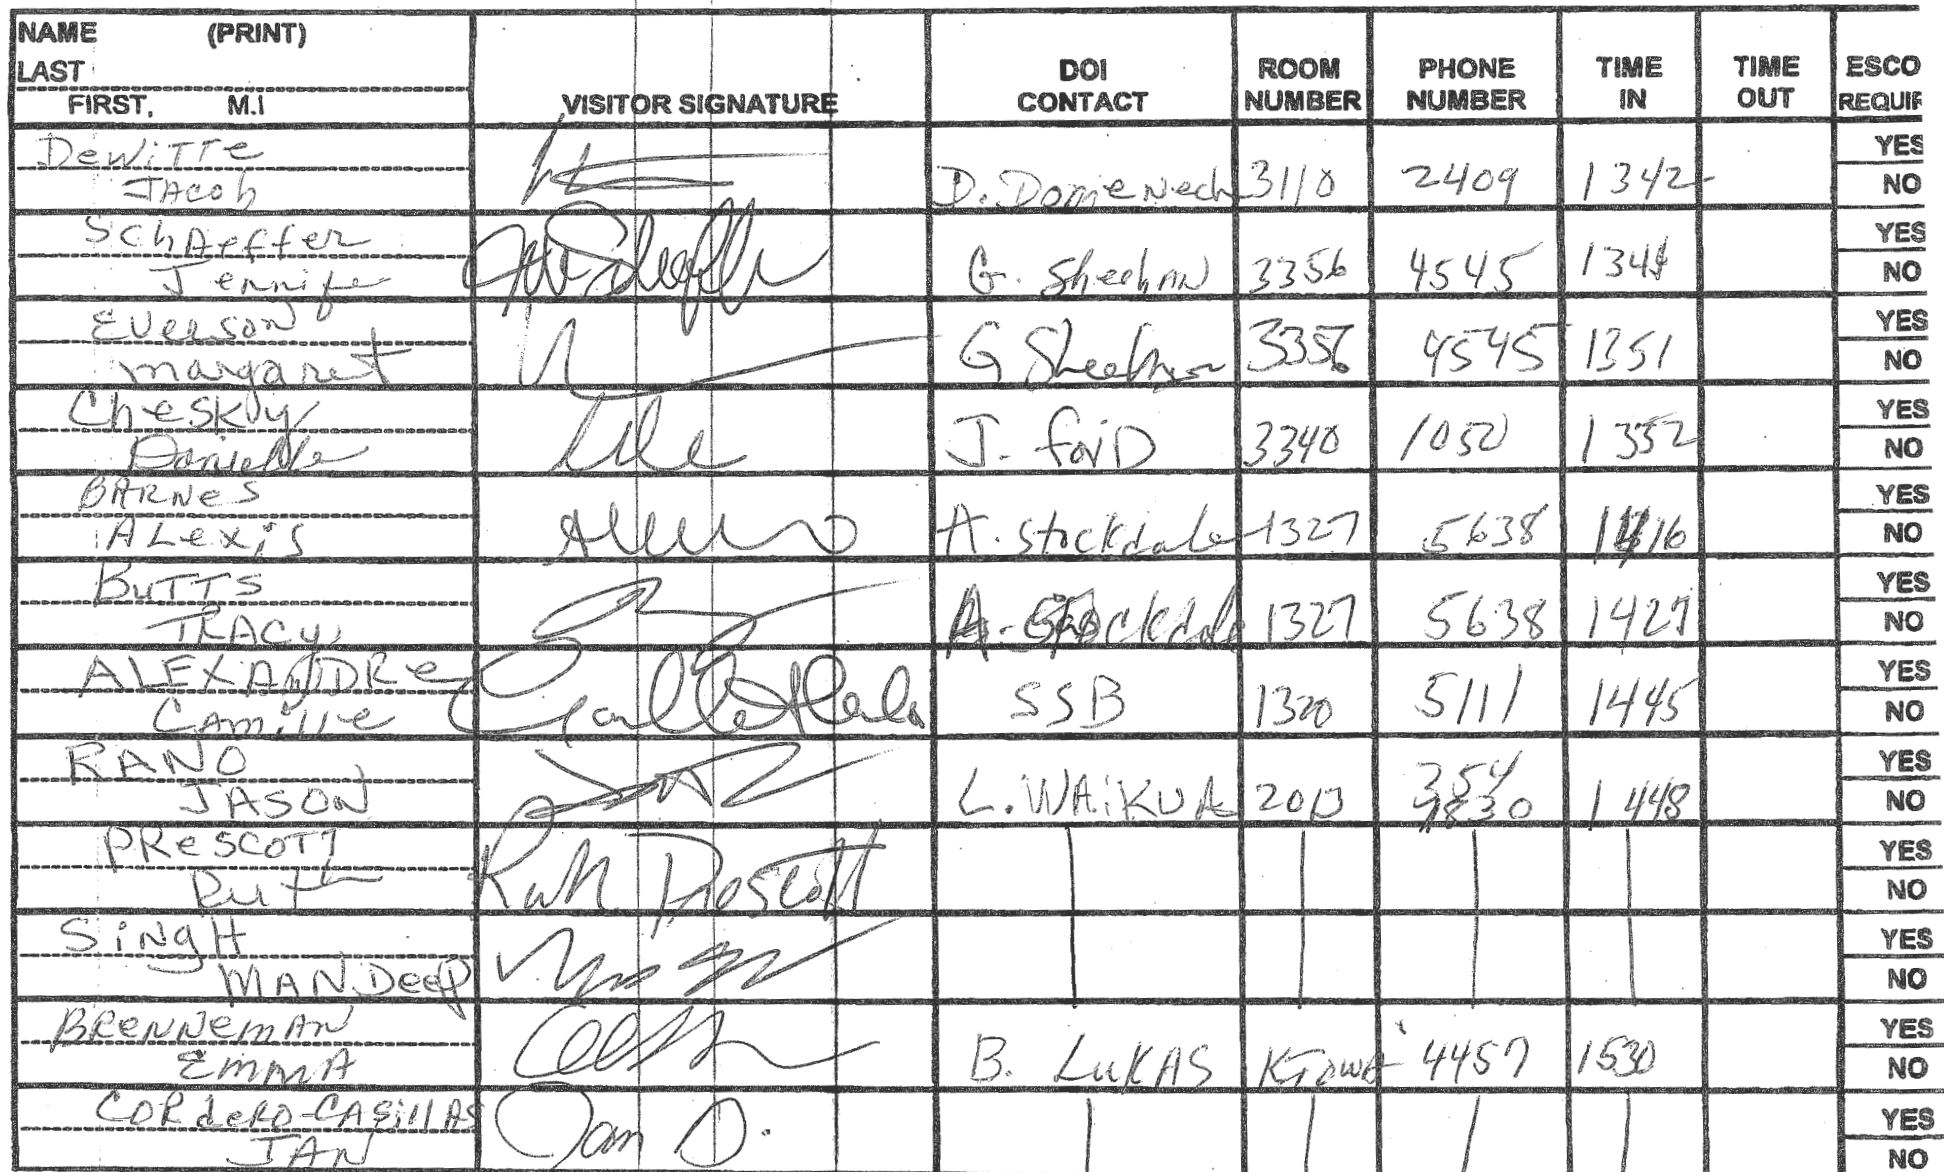 NAME (PRINT)
LAST
FIRST, M.I
VISITOR SIGNATURE
DOI CONTACT
ROOM NUMBER
PHONE NUMBER
TIME IN
TIME OUT
ESCO REQUIR
DeWiTTe
JAcob
D. Domenech 3110 2409 1342
YES
NO
SchAeffer
Jennifer
G. Sheehan 3356 4545 1344
YES
NO
Everson
margaret
G Sheehan 3356 4545 1351
YES
NO
Chesky
Danielle
J. 3340 1050 1352
YES
NO
BARNes
ALexis
A. Stockdale 1327 5638 1416
YES
NO
BuTTS
TRACy
A. Stockdale 1327 5638 1427
YES
NO
ALEXANDRe
Camille
SSB 1320 5111 1445
YES
NO
RANO
JASON
L. WAiKUA 2013 354 1830 1448
YES
NO
PRescoTT
Ruth
Ruth Prescott
YES
NO
SiNgH
MANDeep
YES
NO
BReNNemAN
EmmA
B. LuKAS Kiowa 4457 1530
YES
NO
CORdeRO-CASillAS
JAN
Jan O.
YES
NO